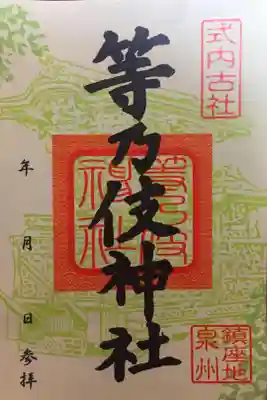 式内古社
等乃伎神社
等乃伎
神社
年 月 日参拝
鎮座地
泉州